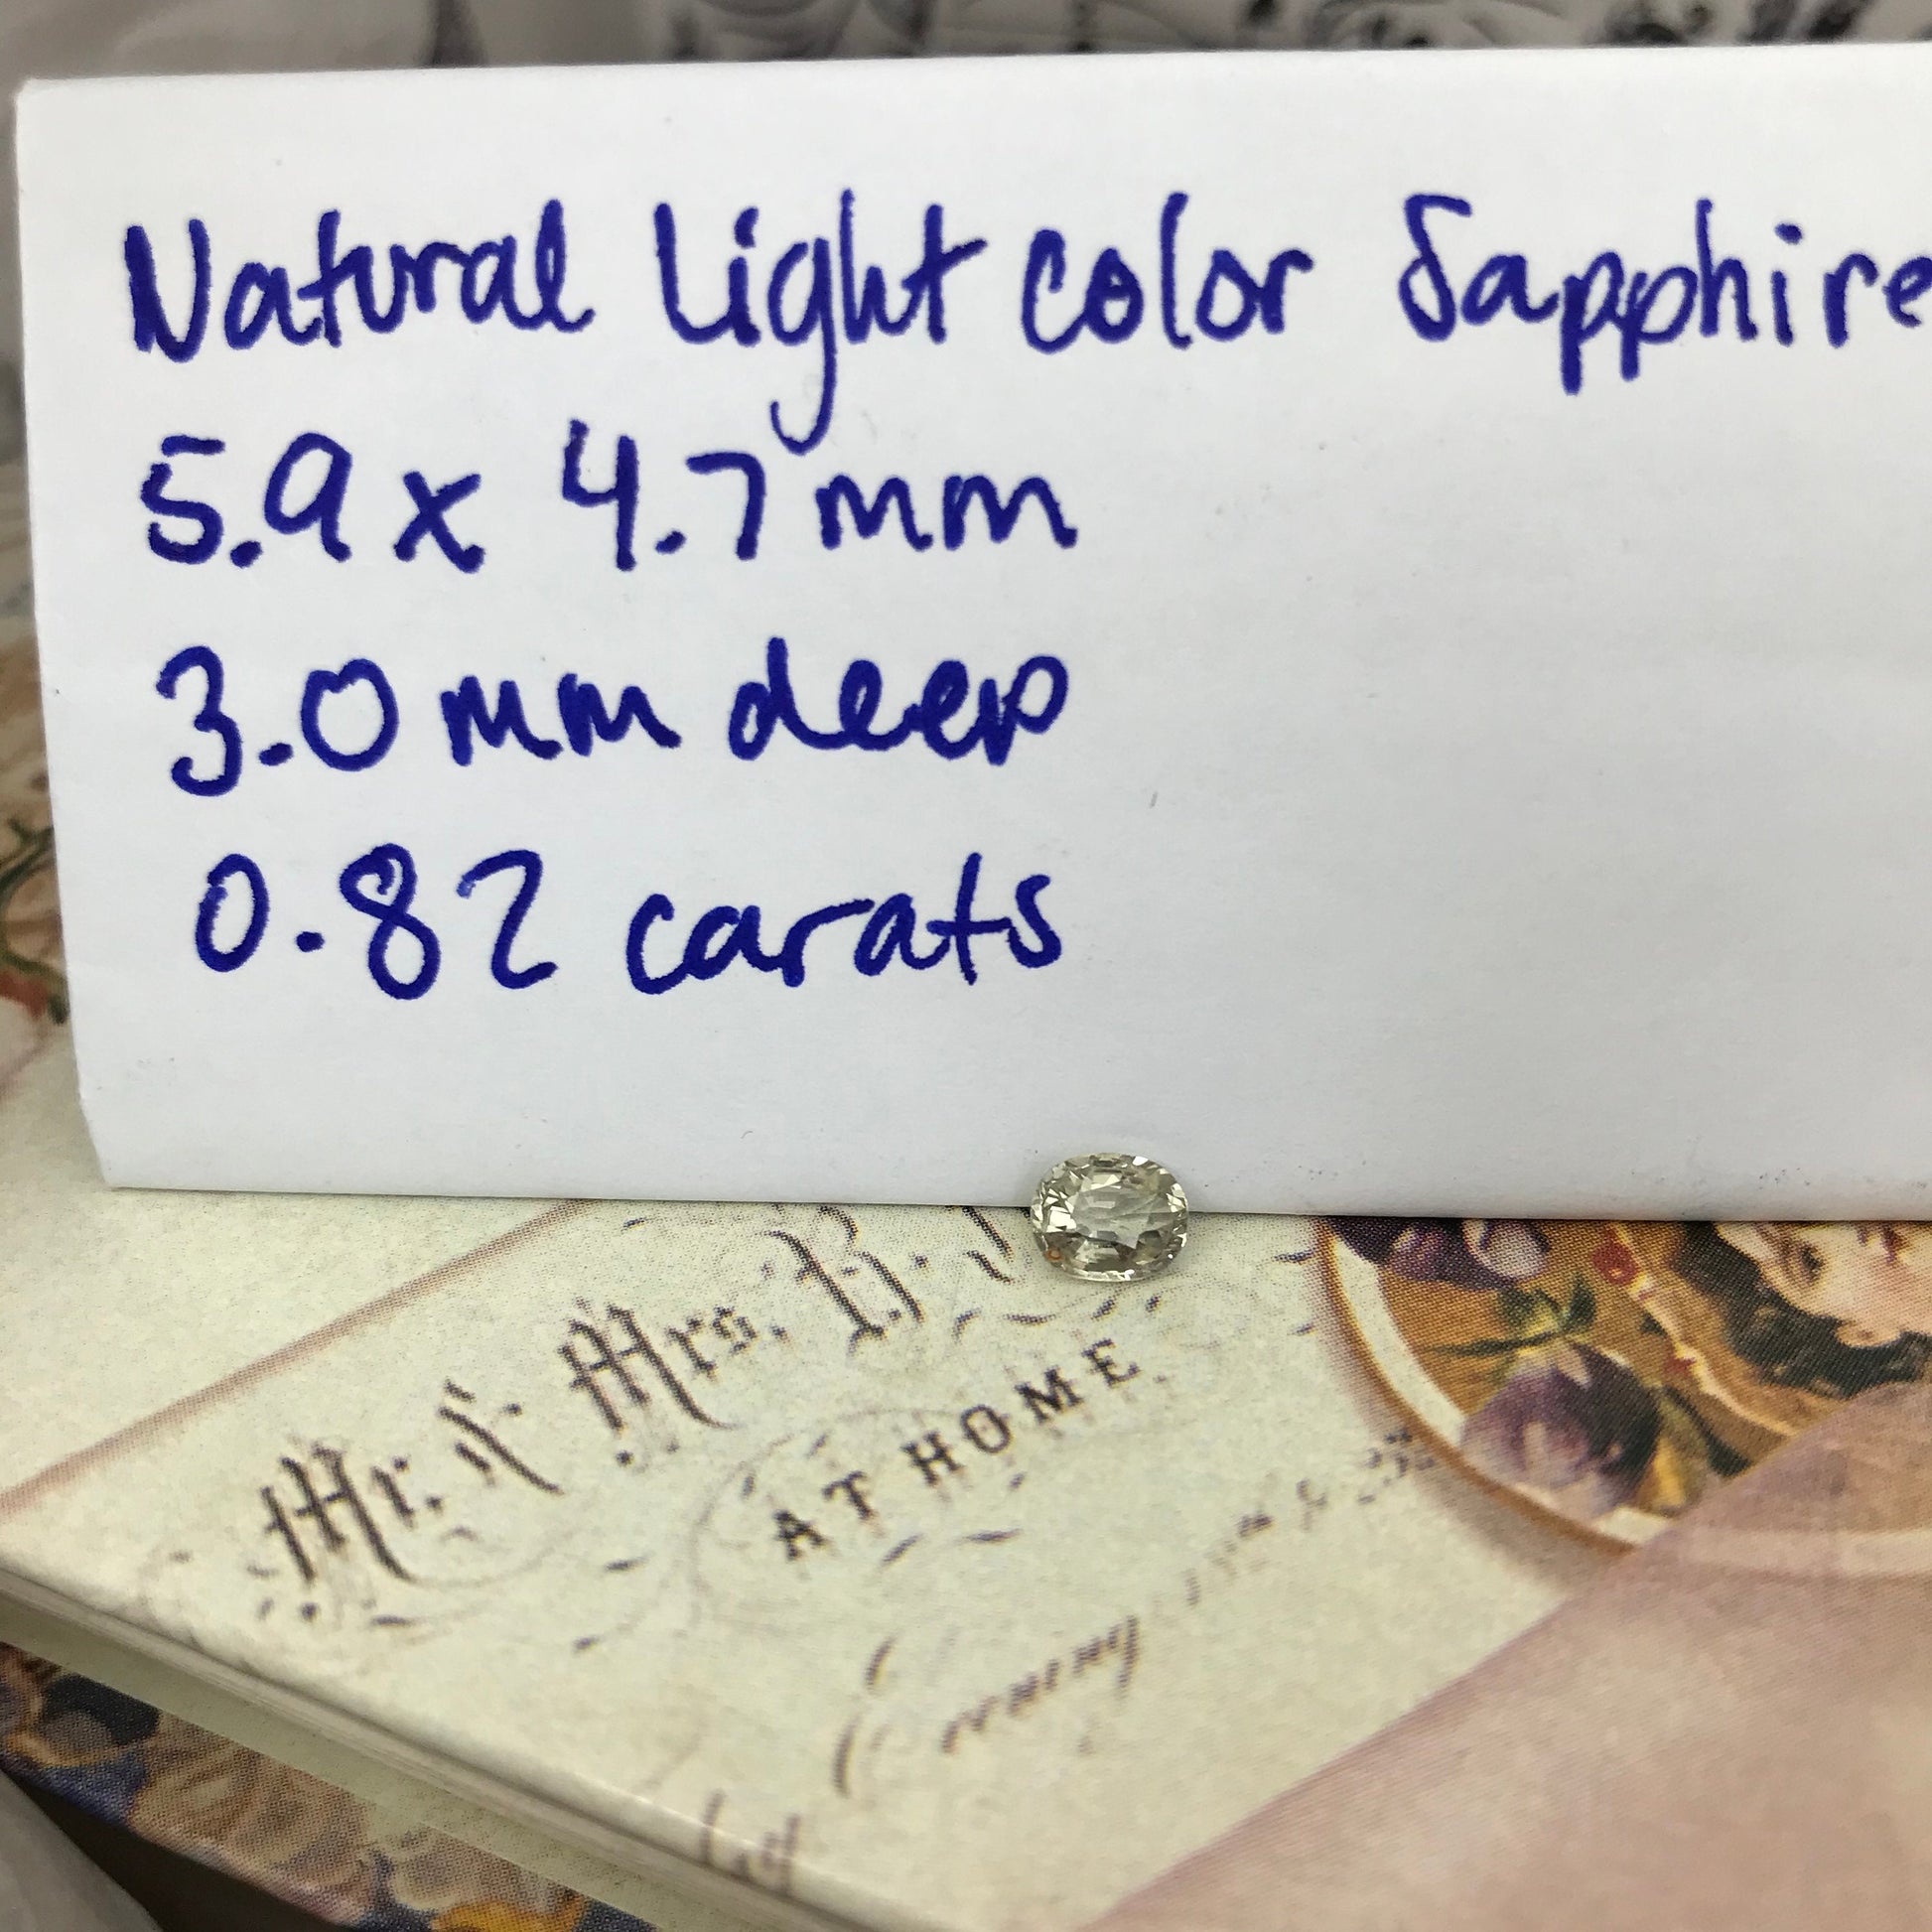 Natural Light color Sapphire
5.9 x 4.7 mm
3.0 mm deep
0.82 carats
Mr. & Mrs. B.
AT HOME
Evening